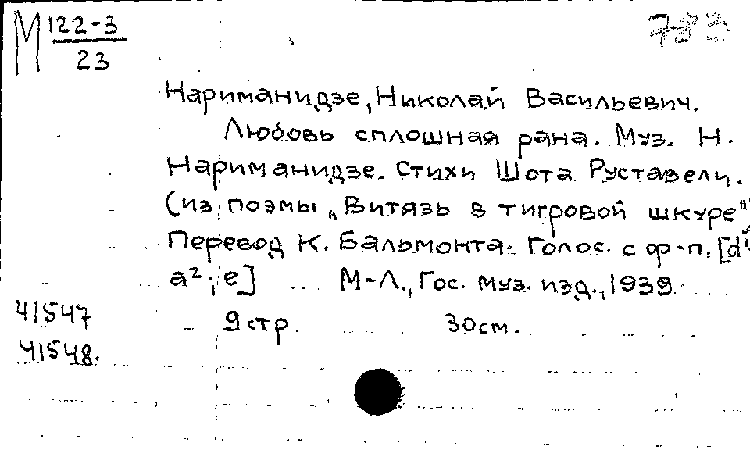 М 122-3
23
Нариманидзе, Николай Васильевич.
Любовь сплошная рана. Муз. Н.
Нариманидзе. Стихи Шота Руставели.
(из поэмы „Витязь в тигровой шкуре"
Перевод К. Бальмонта. Голос. с ф-п. [d'
a²; e] М-Л., Гос. муз. изд., 1939.
41547 9 стр. 30 см.
41548.